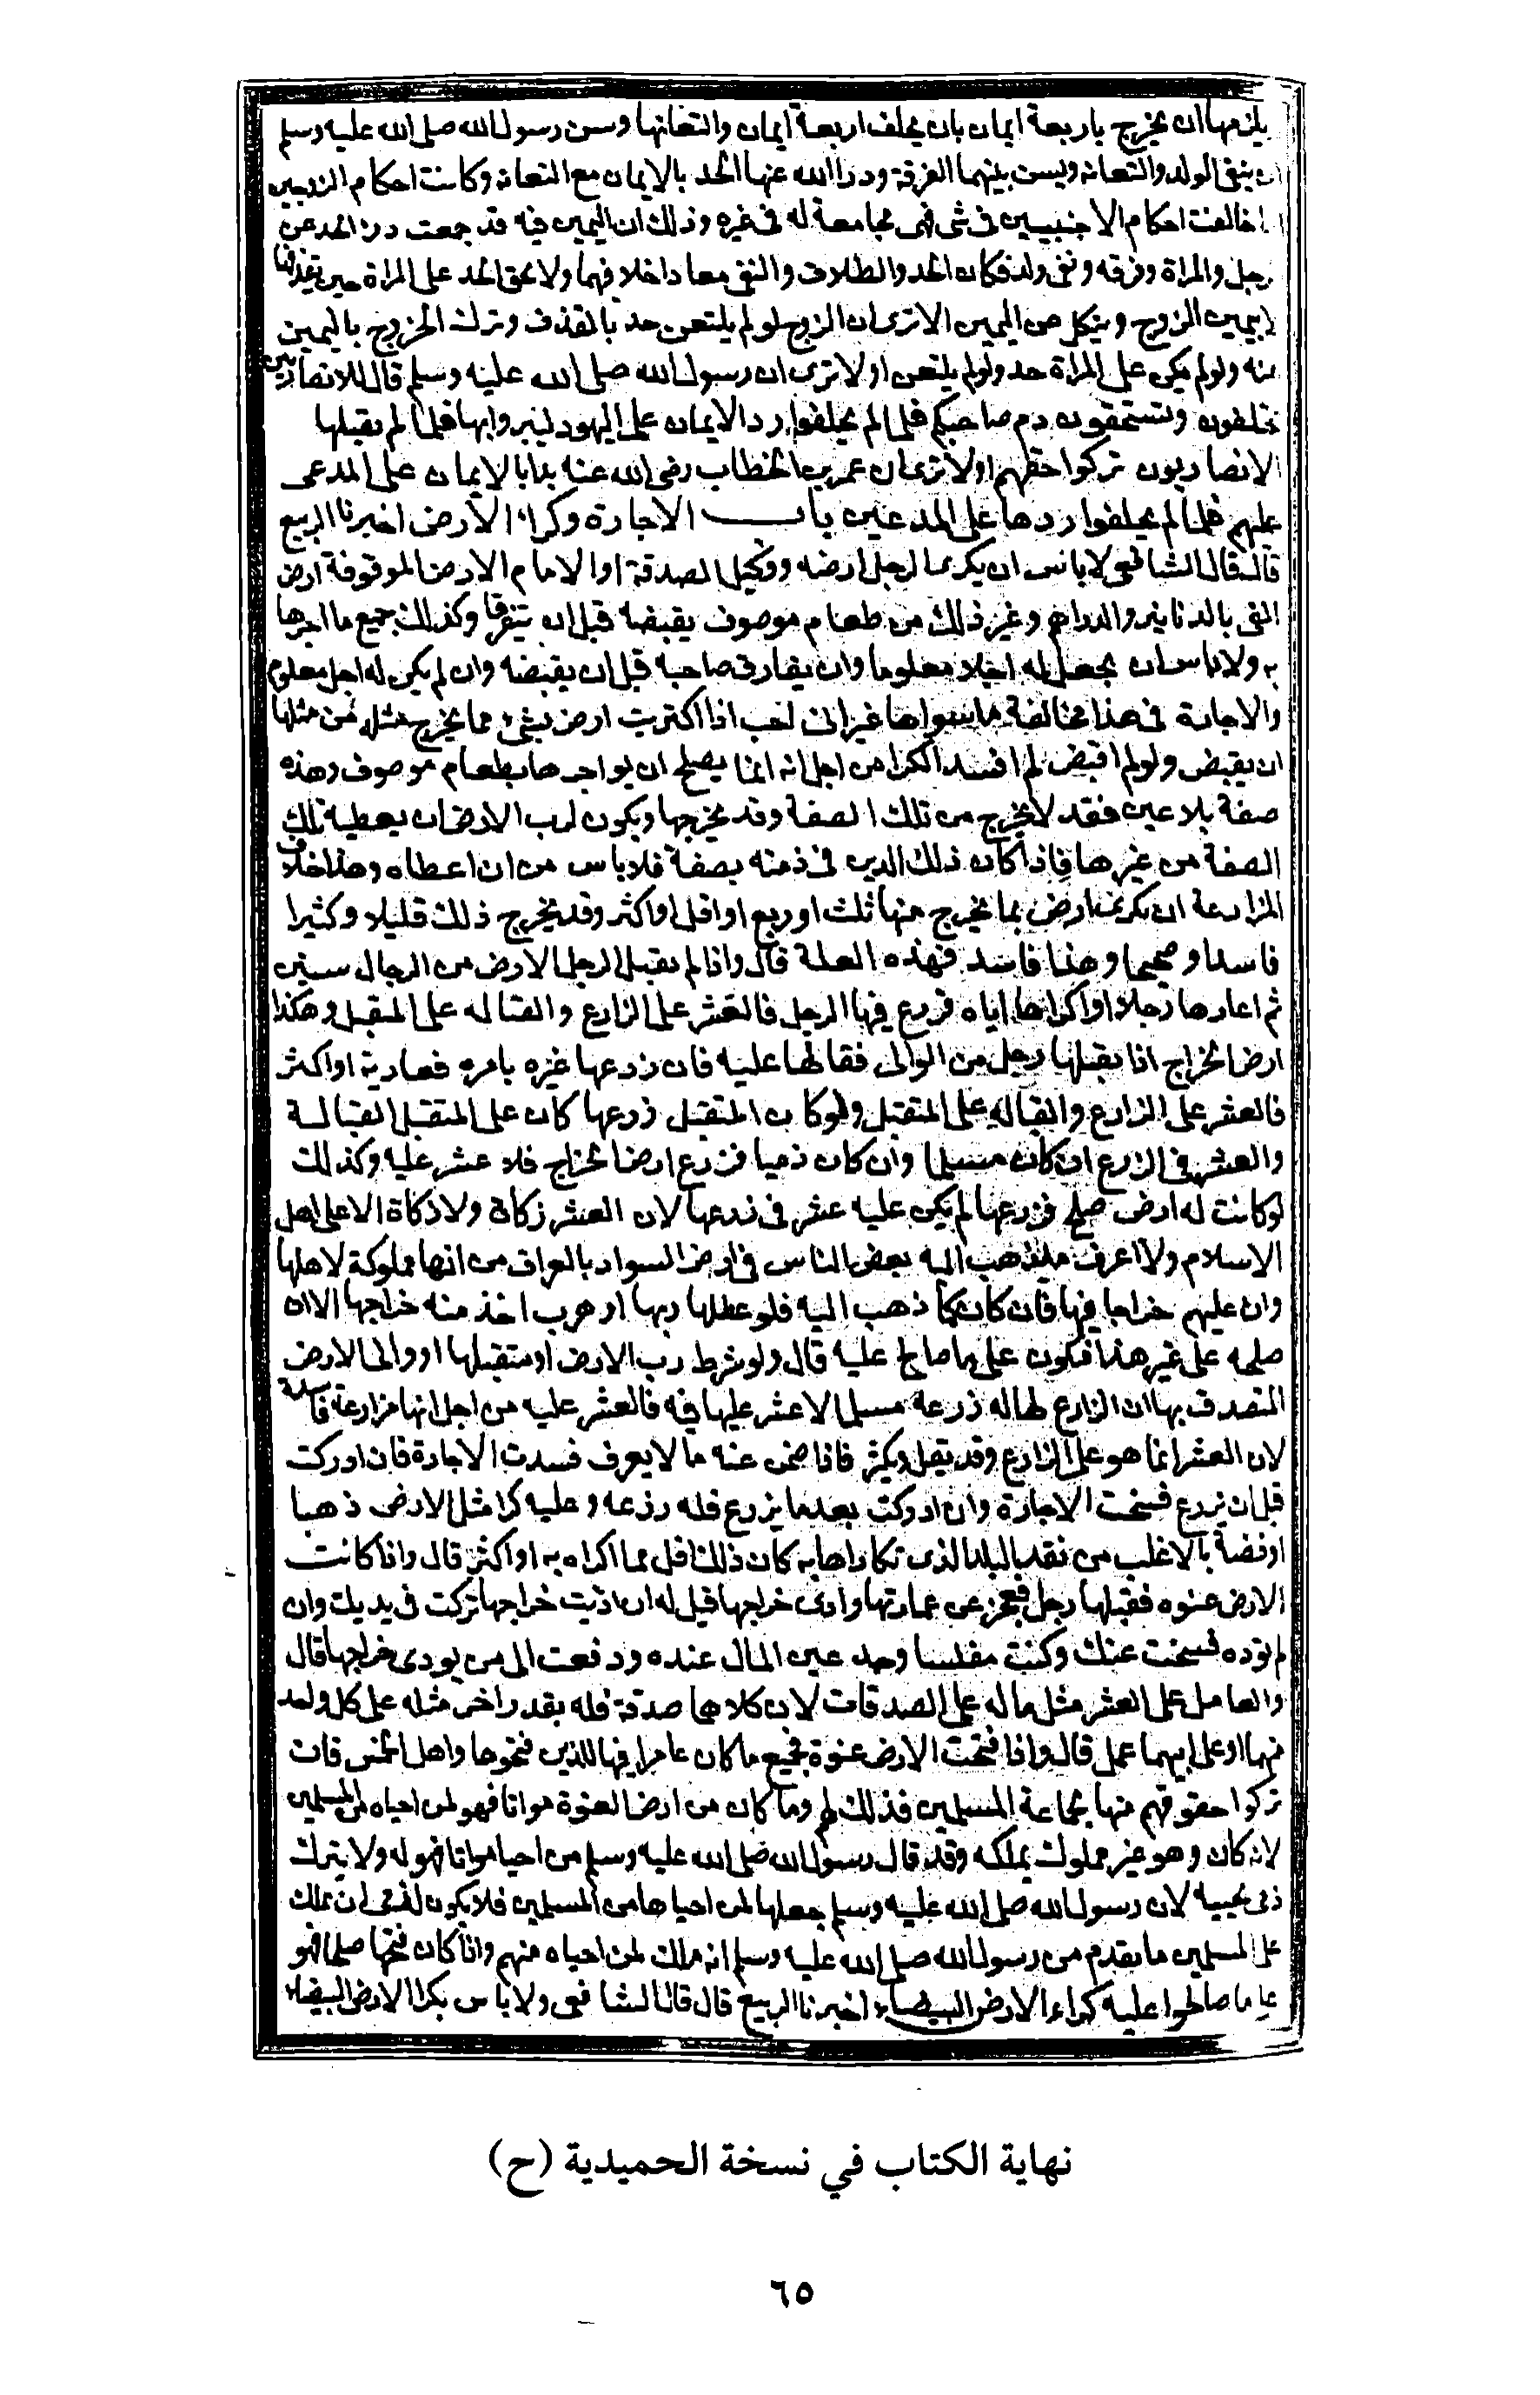 يلزمها ان يخرج باربعة ايمان بان يحلف اربعة ايمان والتعانها وسن رسول الله صلى الله عليه وسلم
ان ينفى الولد والتعانه وليست بينهما الفرقة ودرا الله عنها الحد بالايمان مع التعانه وكانت احكام الزوجين
اذا خالفت احكام الاجنبيين فى شى فهى مجامعة له فى غيره وذلك ان اليمين فيه قد جمعت درء الحد عن
رجل والمراة وفرقه ونفى ولد فكان الحد والطلاق والنفى معا داخلا فيها ولا يحق الحد على المراة حين يقذفها
الا بيمين الزوج وينكل عن اليمين الا ترى ان الزوج لو لم يلتعن حد بالقذف وترك الخروج باليمين
منه ولو لم يكن على المراة حد ولو لم يلتعن اولا ترى ان رسول الله صلى الله عليه وسلم قال للانصاريين
تحلفون وتستحقون دم صاحبكم فلما لم يحلفوا رد الايمان على اليهود ليبروا بها فلما لم يقبلها
الانصاريون تركوا حقهم اولا ترى ان عمر بن الخطاب رضى الله عنه بدا بالايمان على المدعى
عليهم فلما لم يحلفوا ردها على المدعين باب الاجارة وكراء الارض اخبرنا الربيع
قال قال الشافعى لا باس ان يكرى الرجل ارضه ووكيل الصدقة او الامام الارض الموقوفة ارض
الفى بالدنانير والدراهم وغير ذلك من طعام موصوف يقبضه قبل ان يتفرقا وكذلك جميع ما اجرها
به ولا باس ان يجعل له اجلا معلوما وان يفارق صاحبه قبل ان يقبضه وان لم يكن له اجل معلوم
والاجارة فى هذا مخالفة ما سواها غير انى احب اذا اكتريت ارض بشىء مما يخرج مثله من مثلها
ان يقبض ولو لم اقبض لم افسد الكرا من اجل انه انما يصلح ان يواجرها بطعام موصوف وهذه
صفة بلا عين فقد لا يخرج من تلك الصفة وقد يخرجها ويكون لرب الارض ان يعطيه تلك
الصفة من غيرها فاذا كان ذلك الدين فى ذمته بصفة فلا باس من ان اعطاه وهذا خلاف
المزارعة ان يكرى ارض بما يخرج منها ثلث او ربع او اقل او اكثر وقد يخرج ذلك قليلا وكثيرا
فاسدا وصحيحا وهذا فاسد فهذه العلة قال واذا لم يقبل الرجل الارض من الرجال سنين
ثم اعارها رجلا او اكراها اياه فزرع فيها الرجل فالعشر على الزارع والقباله على المتقبل وهكذا
ارض الخراج اذا يقبلها رجل من الوالى فقالها عليه فان زرعها غيره بامره فعارية او اكثر
فالعشر على الزارع والقباله على المتقبل ولو كان المتقبل زرعها كان على المتقبل القبالة
والعشر فى الزرع ان كان مسلما وان كان ذميا فزرع ارض الخراج فلا عشر عليه وكذلك
لو كانت له ارض صلح فزرعها لم يكن عليه عشر فى زرعها لان العشر زكاة ولا زكاة الا على اهل
الاسلام ولا اعرف ما يذهب اليه بعض الناس فى ارض السواد بالعراق من انها مملوكة لاهلها
وان عليهم خراجا فيها فان كان كما ذهب اليه فلو عطلها ربها او هرب اخذ منه خراجها الا ان
صلحه على غير هذا فيكون على ما صالح عليه قال ولو شرط رب الارض او متقبلها او والى الارض
المتصدق بها ان الزارع لها له زرعه مسلما لا عشر عليها فيه فالعشر عليه من اجل انها مزارعة فاسدة
لان العشر انما هو على الزارع وقد يقل ويكثر فاذا ضمن عنه ما لا يعرف فسدت الاجارة فان ادركت
قبل ان يزرع فسخت الاجارة وان ادركت بعدما يزرع فله زرعه وعليه كرا مثل الارض ذهبا
او فضة بالاغلب من نقد البلد الذى تكاراها به كان ذلك اقل مما اكراه به او اكثر قال واذا كانت
الارض عنوه فقبلها رجل فعجز عن عمارتها وادى خراجها قيل له ان اديت خراجها تركت فى يديك وان
لم توده فسخت عنك وكنت مفلسا وجد عين المال عنده ودفعت الى من يودى خراجها قال
والعامل على العشر مثل ماله على الصدقات لان كلاهما صدقة فله بقدر اخر مثله على كل واحد
منهما او على ايهما عمل قال واذا فتحت الارض عنوة فجميع ما كان عامرا فيها للذين فتحوها واهل الخمس فان
تركوا حقوقهم منها لجماعة المسلمين فذلك لهم وما كان من ارض العنوة مواتا فهو لمن احياه من المسلمين
لانه كان وهو غير مملوك يملكه وقد قال رسول الله صلى الله عليه وسلم من احيا مواتا فهو له ولا يترك
ذمى يحييه لان رسول الله صلى الله عليه وسلم جعلها لمن احياها من المسلمين فلا يكون لذمى ان يملك
على المسلمين ما تقدم من رسول الله صلى الله عليه وسلم انه ملك لمن احياه منهم واذا كان فتحها صلحا فهو
على ما صالحوا عليه كراء الارض البيضاء اخبرنا الربيع قال قال الشافعى ولا باس بكرا الارض البيضاء
نهاية الكتاب في نسخة الحميدية (ح)
٦٥